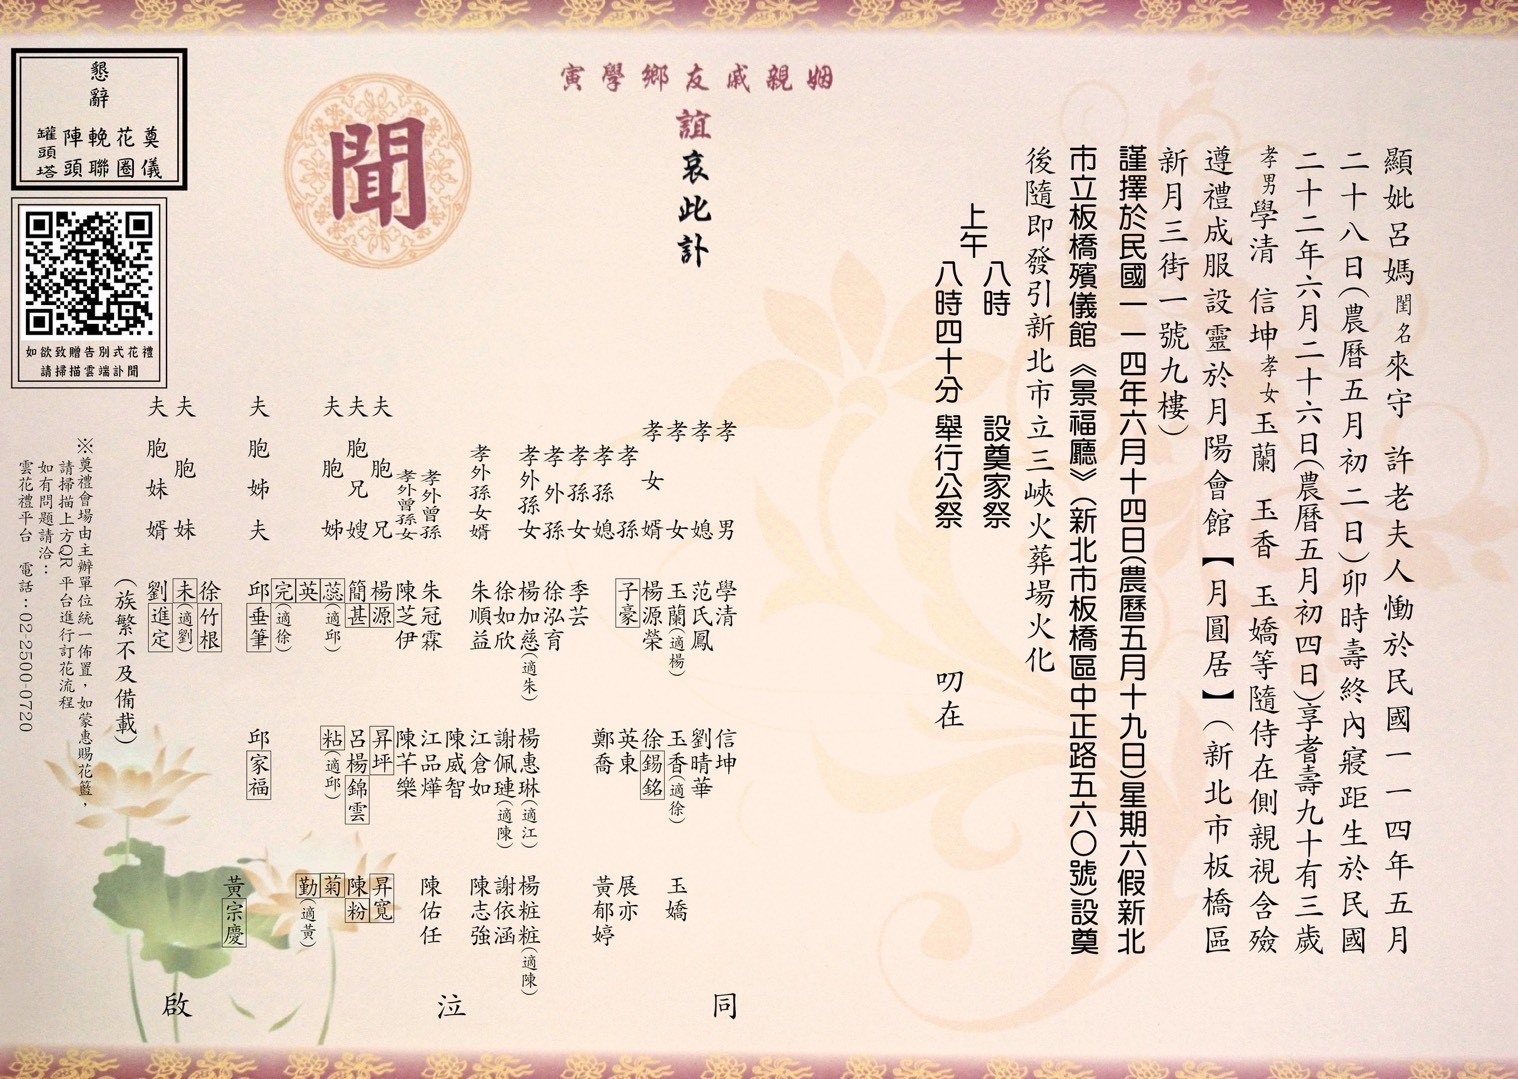 顯妣呂媽閨名來守　許老夫人慟於民國一一四年五月
二十八日(農曆五月初二日)卯時壽終內寢距生於民國
二十二年六月二十六日(農曆五月初四日)享耆壽九十有三歲
孝男學清　信坤孝女玉蘭　玉香　玉嬌等隨侍在側親視含殮
遵禮成服設靈於月陽會館【月圓居】(新北市板橋區
新月三街一號九樓)
謹擇於民國一一四年六月十四日(農曆五月十九日)星期六假新北
市立板橋殯儀館《景福廳》(新北市板橋區中正路五六〇號)設奠
後隨即發引新北市立三峽火葬場火化
上午
八時　設奠家祭
八時四十分　舉行公祭　叨在
姻親戚友鄉學寅
誼哀此訃
聞
孝男　學清　信坤
孝媳　范氏鳳　劉晴華
孝女　玉蘭(適楊)　玉香(適徐)　玉嬌
孝女婿　楊源榮　徐錫銘
孝孫　子豪　英東　展亦
孝孫媳　鄭喬　黃郁婷
孝孫女　季芸
孝外孫　徐泓育
孝外孫女　楊加慈(適朱)　楊惠琳(適江)　楊粧粧(適陳)
徐如欣　謝佩璉(適陳)　謝依涵
孝外孫女婿　朱順益　江倉如　陳志強
陳威智
孝外曾孫　朱冠霖　江品燁　陳佑任
孝外曾孫女　陳芝伊　陳芊樂
夫胞兄　楊源　昇坪　昇寬
夫胞兄嫂　簡甚　呂楊錦雲　陳粉
夫胞姊　蕊(適邱)　粘(適邱)　菊
英　勤(適黃)
完(適徐)
夫胞姊夫　邱垂筆　邱家福　黃宗慶
徐竹根
夫胞妹　未(適劉)
夫胞妹婿　劉進定
(族繁不及備載)
同泣啟
懇辭
奠儀
花圈
輓聯
陣頭
罐頭塔
如欲致贈告別式花禮
請掃描雲端訃聞
※奠禮會場由主辦單位統一佈置，如蒙惠賜花籃，
請掃描上方QR 平台進行訂花流程
如有問題請洽：
雲花禮平台　電話：02-2500-0720